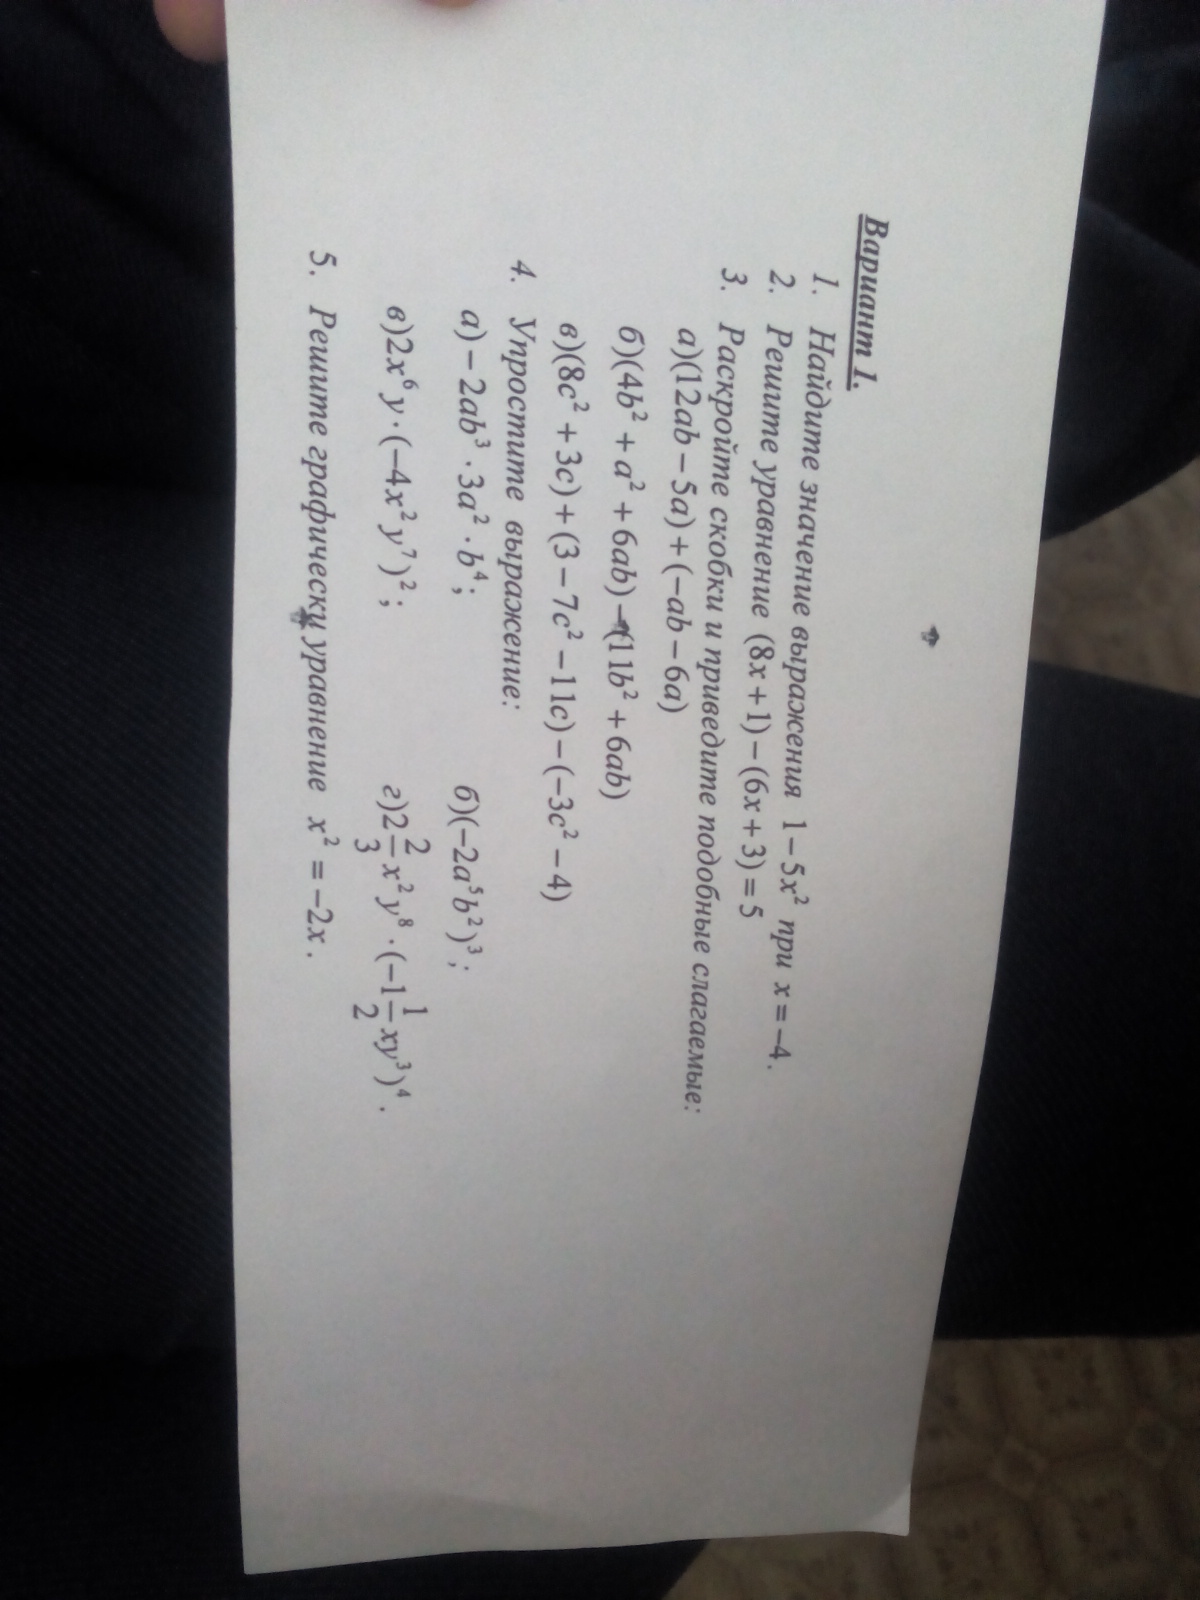 Вариант 1.
1. Найдите значение выражения 1 − 5x² при x = −4.
2. Решите уравнение (8x + 1) − (6x + 3) = 5
3. Раскройте скобки и приведите подобные слагаемые:
а)(12ab − 5a) + (−ab − 6a)
б)(4b² + a² + 6ab) − (11b² + 6ab)
в)(8c² + 3c) + (3 − 7c² − 11c) − (−3c² − 4)
4. Упростите выражение:
а) − 2ab³ · 3a² · b⁴; б)(−2a⁵b²)³;
в)2x⁶y · (−4x²y⁷)²; г)2 2/3 x²y⁸ · (−1 1/2 xy³)⁴.
5. Решите графически уравнение x² = −2x.